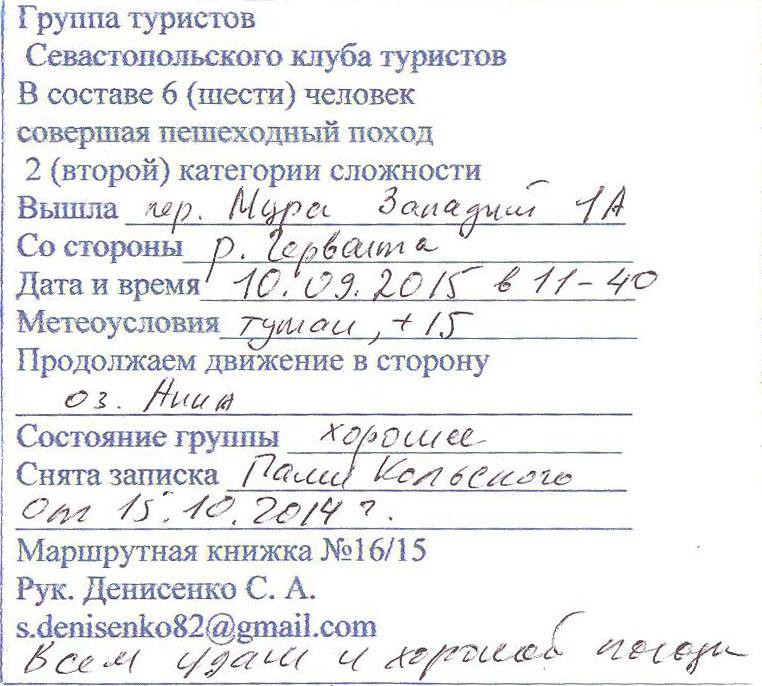 Группа туристов
Севастопольского клуба туристов
В составе 6 (шести) человек
совершая пешеходный поход
2 (второй) категории сложности
Вышла пер. Мура Западный 1А
Со стороны р.
Дата и время 10.09.2015 в 11-40
Метеоусловия туман, +15
Продолжаем движение в сторону
оз.
Состояние группы хорошее
Снята записка Кольского
от 15.10.2014 г.
Маршрутная книжка №16/15
Рук. Денисенко С. А.
s.denisenko82@gmail.com
Всем удачи и хорошей погоды